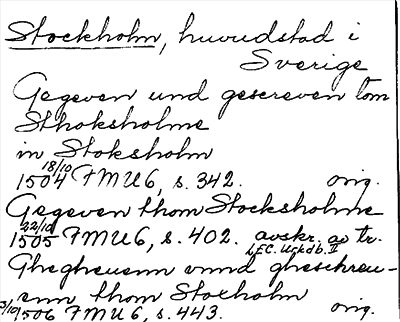 Stockholm, huvudstad i
Sverige
Gegeven und gescreven tom
Sthoksholme
in Stoksholm
18/10
1504 FMU 6, s. 342. orig.
Gegeven thom Stocksholme
22/10
1505 FMU 6, s. 402. avskr. av tr.
LEC. Urkdb. II
Ghegheuenn vnnd gheschreu-
enn thom Stocholm
3/10 1506 FMU 6, s. 443. orig.